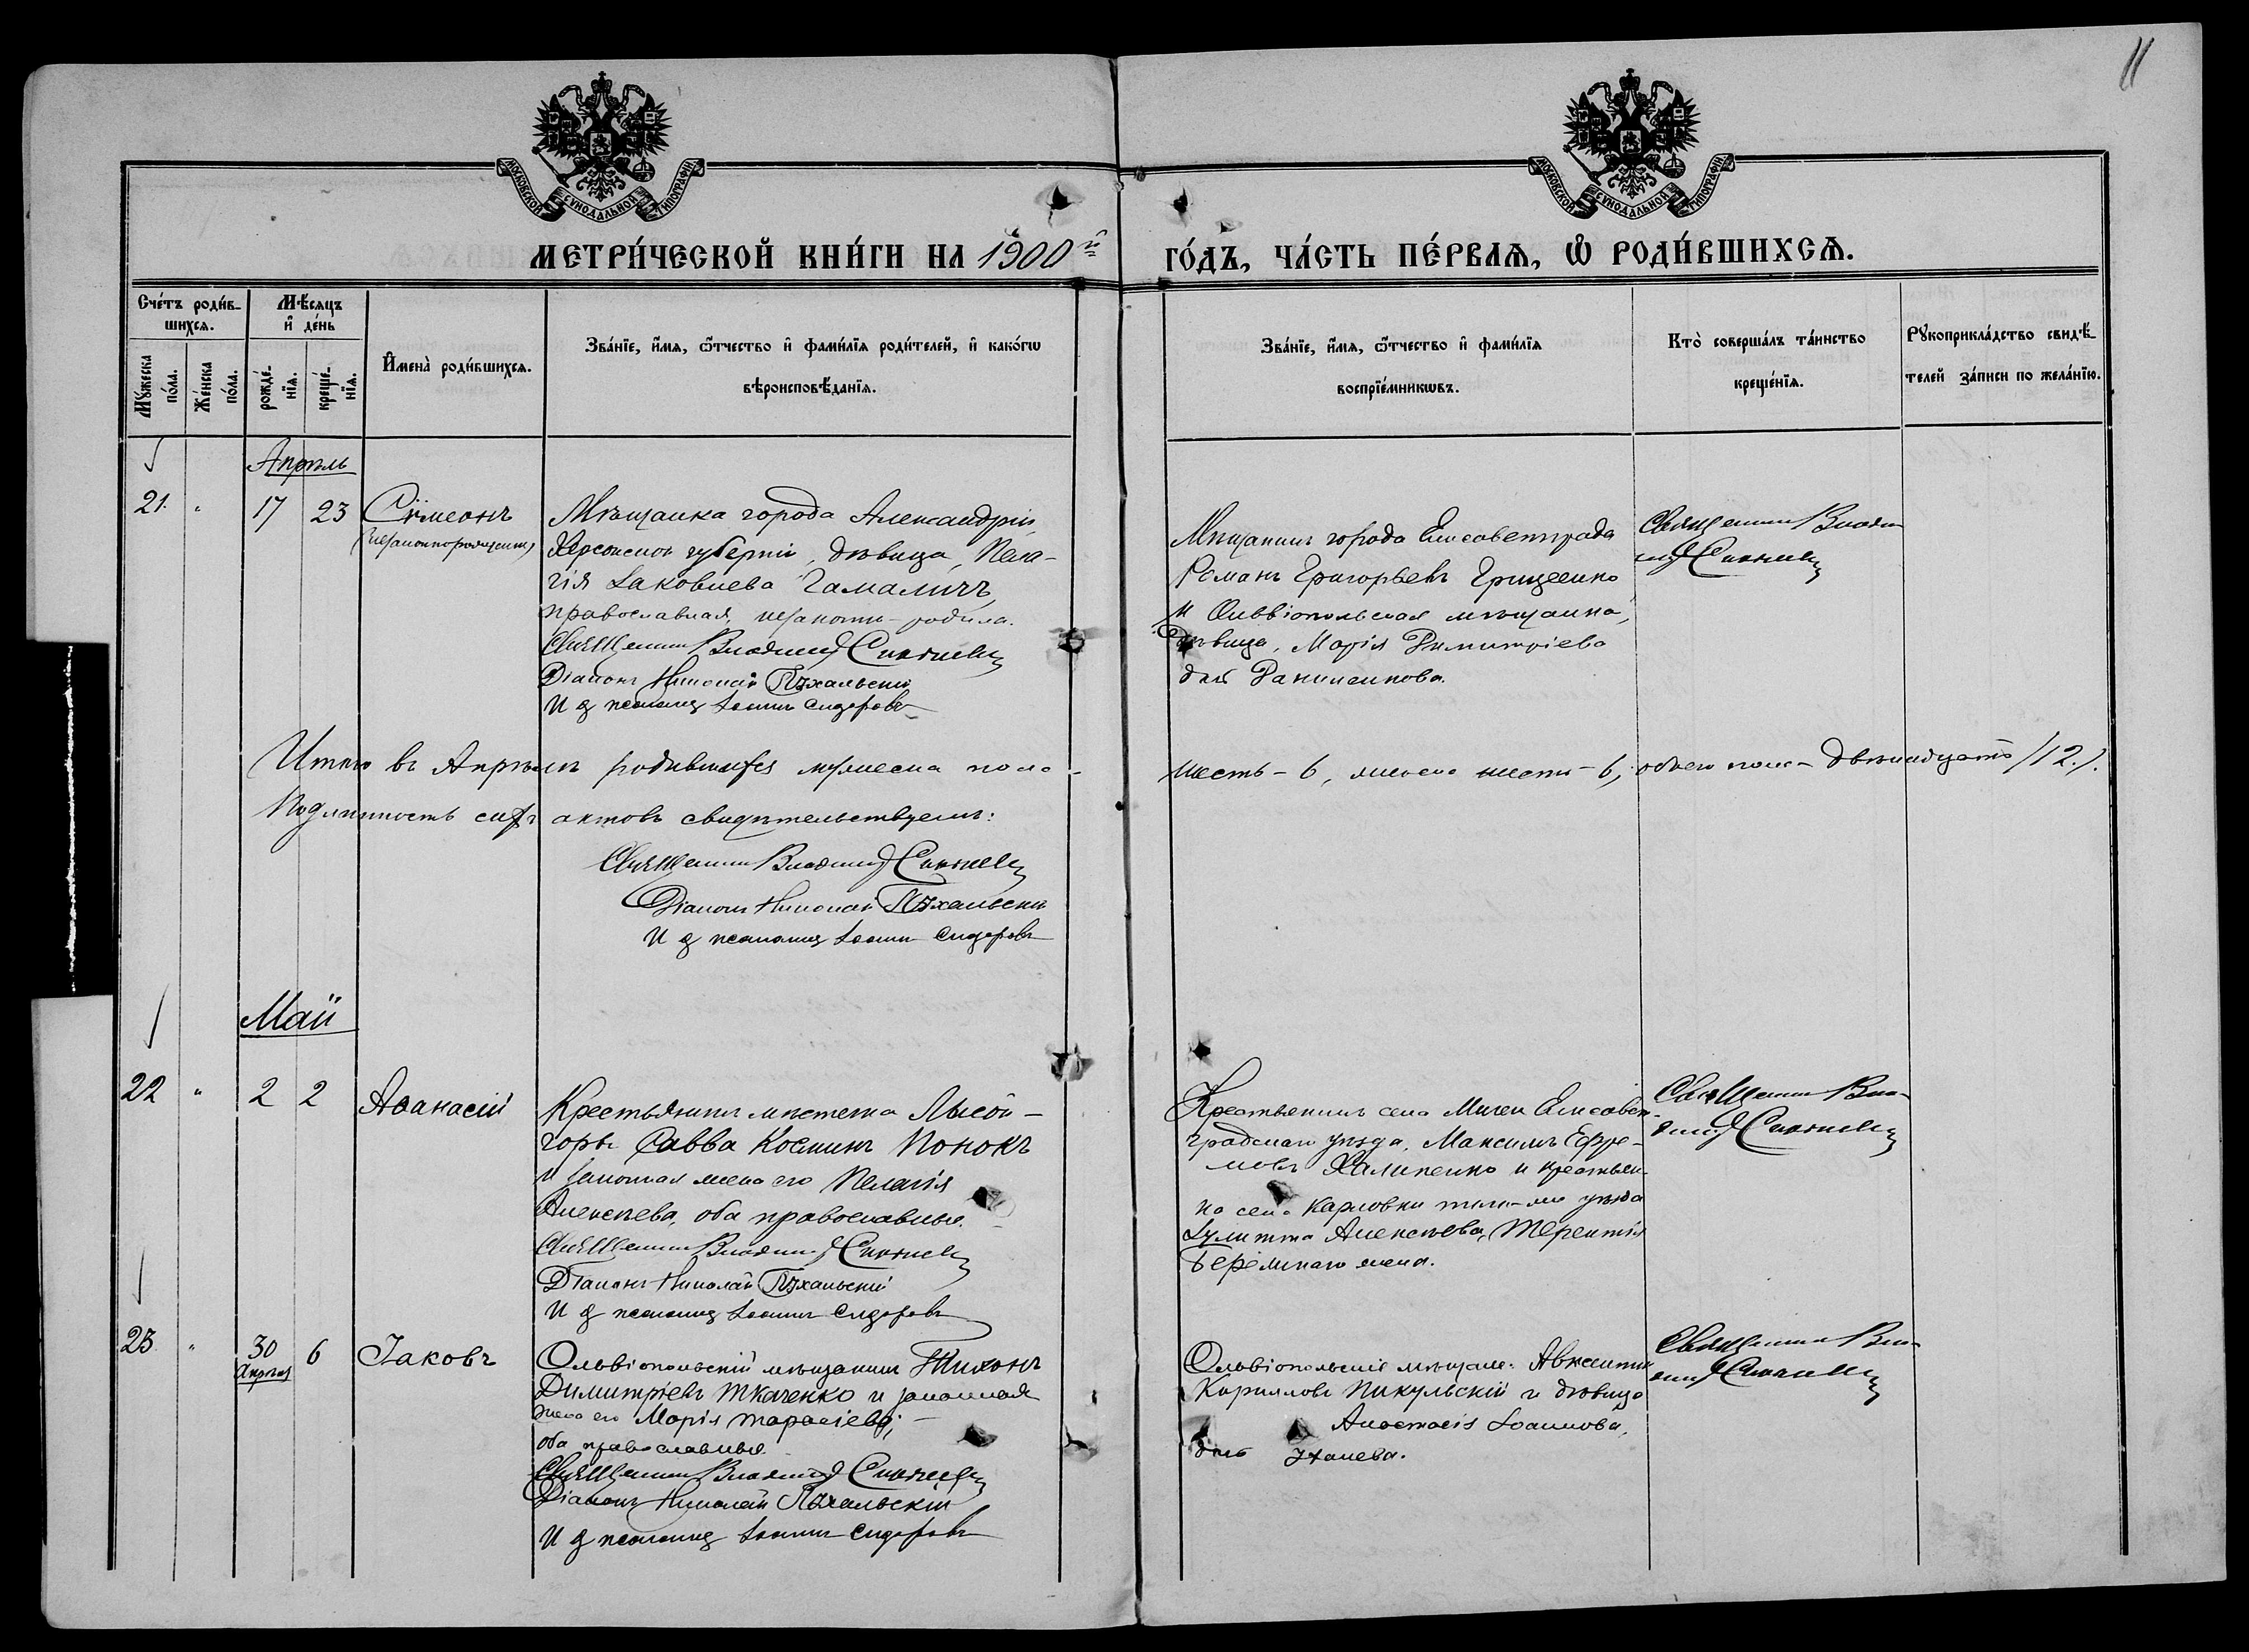 11
МОСКОВСКОЙ СѴНОДАЛЬНОЙ ТИПОГРАФІИ
МОСКОВСКОЙ СѴНОДАЛЬНОЙ ТИПОГРАФІИ
МЕТРИ́ЧЕСКОЙ КНИ́ГИ НА 1900й
ГО́ДЪ, ЧА́СТЬ ПЕ́РВАЯ, Ѡ РОДИ́ВШИХСЯ.
Сче́тъ роди́в-
шихся.
Мꙋ́жеска
по́ла.
Же́нска
по́ла.
Мѣ́сяцъ
и҆ де́нь
рожде́-
нїя.
креще́-
нїя.
И҆мена̀ роди́вшихся.
Зва́нїе, и҆́мя, ѻ҆́тчество и҆ фами́лїя роди́телей, и҆ како́гѡ
вѣроисповѣ́данїя.
Зва́нїе, и҆́мя, ѻ҆́тчество и҆ фами́лїя
воспрїе́мникѡвъ.
Кто̀ соверша́лъ та́инство
креще́нїя.
Рꙋкоприкла́дство свидѣ́-
телей за́писи по жела́нїю.
Апрѣль
21. " 17 23 Сѵмеонъ
(незаконнорожденный)
Мѣщанка города Александріи,
Херсонской губерніи, дѣвица, Пела-
гія Іаковлева Гамаличъ,
православная, незаконно-родила.
Священникъ Владимір
Діаконъ Николай Пѣхальскій
И д псаломщ Іоаннъ Сидоровъ
Мѣщанинъ города Елисаветграда
Романъ Григорьевъ Грищенко
и Ольвіопольская мѣщанка,
дѣвица, Марія Димитріева
дочь Данименкова.
Священникъ Влади
мір
Итого въ Апрѣлѣ родившихся мужеска пола -
шесть - 6, женска шесть - 6, обоего пола - двѣнадцать /12./.
Подлинность сихъ актовъ свидѣтельствуемъ:
Священникъ Владимір
Діаконъ Николай Пѣхальскій
И д псаломщ Іоаннъ Сидоровъ
Май
22 " 2 2 Аѳанасій
Крестьянинъ мѣстечка Лысой-
горы Савва Косминъ Понокъ
и законная жена его Пелагія
Алексѣева, оба православные.
Священникъ Владимір
Діаконъ Николай Пѣхальскій
И д псаломщ Іоаннъ Сидоровъ
Крестьянинъ села Мигеи Елисавет-
градскаго уѣзда, Максимъ Ефре-
мовъ Халипенко и крестьян-
ка села Карловки того-же уѣзда
Іулитта Алексѣева, Терентія
жена.
Священникъ Вла-
димір
23 " 30 6 Іаковъ
Апрѣля
Ольвіопольскій мѣщанинъ Тихонъ
Димитріевъ Ткаченко и законная
жена его Марія Тарасіева,
оба православные.
Священникъ Владимір
Діаконъ Николай Пѣхальскій
И д псаломщ Іоаннъ Сидоровъ
Ольвіопольскіе мѣщане: Авксентій
Кирилловъ Пикульскій и дѣвица
Анастасія Іоаннова,
дочь
Священникъ Вла-
димір